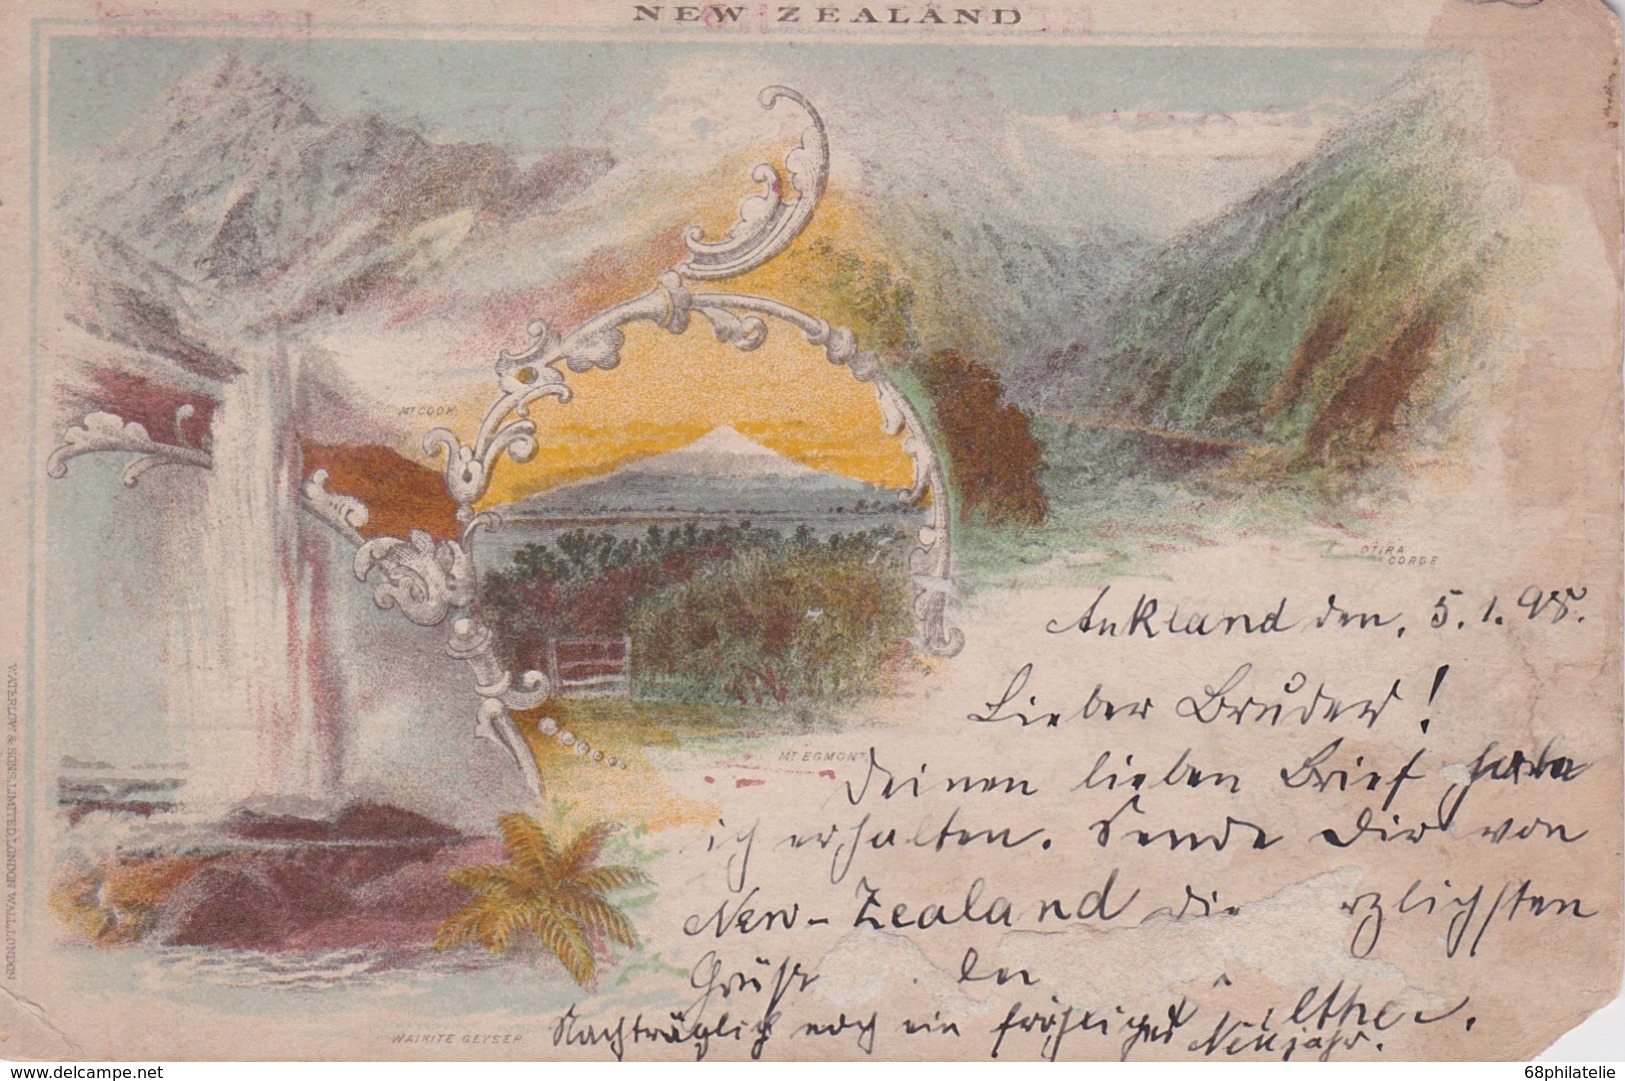 NEW ZEALAND
MT COOK
OTIRA
GORGE.
Aukland den, 5.1.98.
Lieber Bruder!
MT EGMONT.
Deinen lieben Brief habe
ich erhalten. Sende Dir von
New-Zealand die rzlichsten
Grüße
Nachträglich noch ein fröhliches Neujahr.
WAIKITE GEYSER
WATERLOW & SONS, LIMITED, LONDON WALL, LONDON
delcampe.net
68philatelie